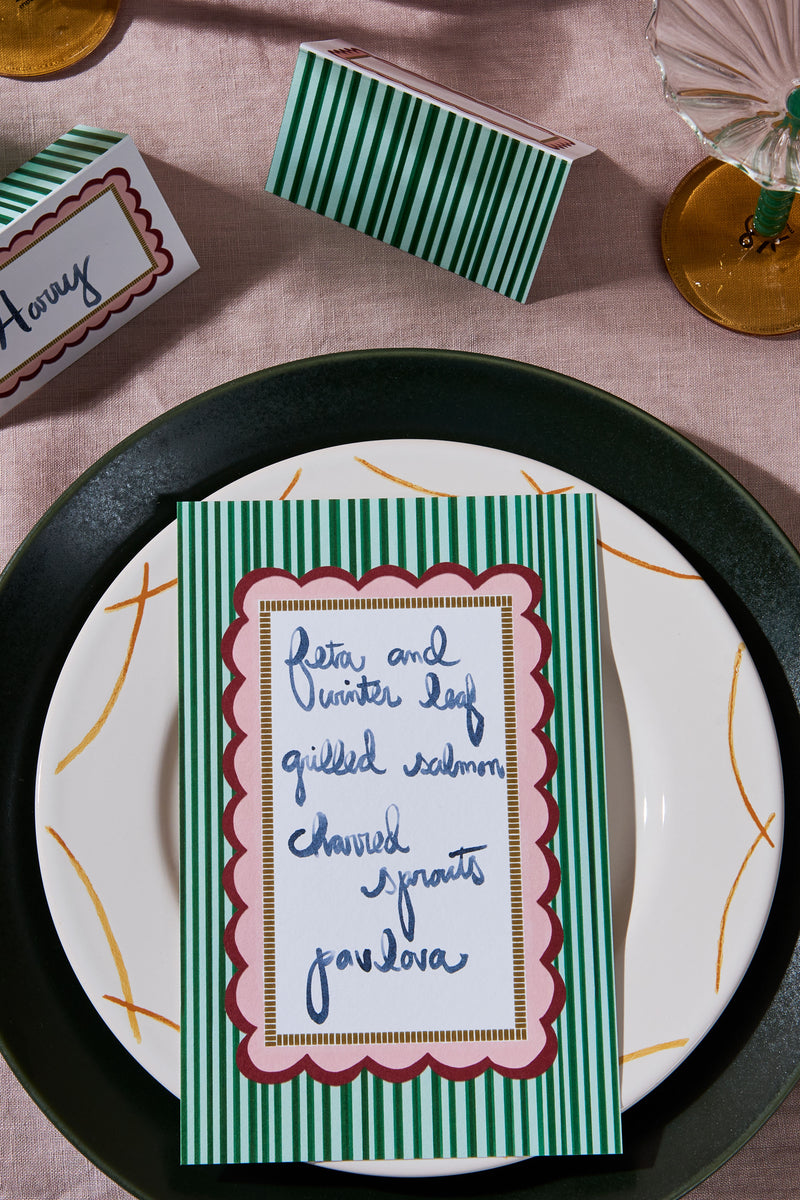 Harry
feta and
winter leaf
grilled salmon
charred
sprouts
pavlova